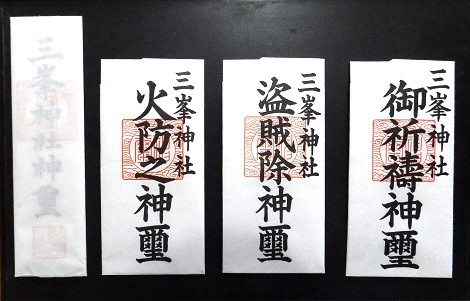 三峯神社神璽
三峯神社
火防之神璽
三峯神社
盗賊除神璽
三峯神社
御祈禱神璽